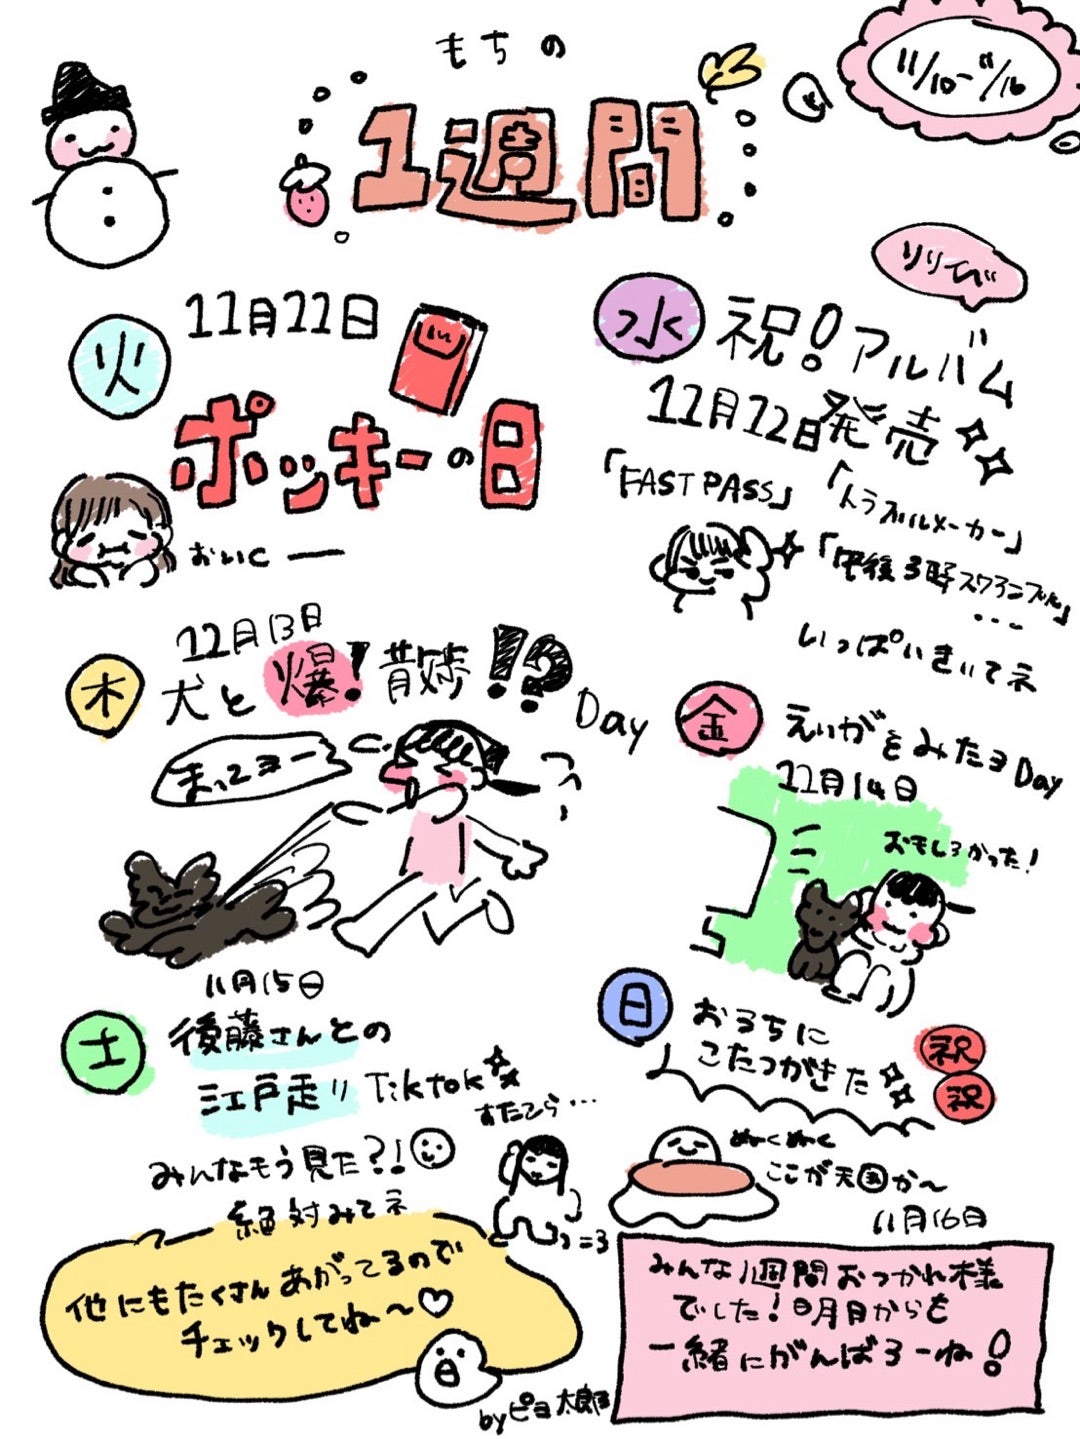 もちの
1週間
11/10-11/16
火
11月11日
ポッキーの日
おいしー
りりいべ
水
祝!アルバム
11月12日発売
「FASTPASS」
「トラブルメーカー」
「午後3時スクランブル」
...
いっぱいきいてネ
木
11月13日
犬と爆!散歩!?Day
まってヨー
金
えいがをみたヨDay
11月14日
おもしろかった!
土
11月15日
後藤さんとの
江戸走りTiktok
すたこら...
みんなもう見た?!
絶対みてネ
=3
他にもたくさんあがってるので
チェックしてね〜♡
byピヨ太郎
日
おうちに
こたつがきた
祝
祝
ぬくぬく
ここが天国か〜
11月16日
みんな1週間おつかれ様
でした!明日からも
一緒にがんばろーね!